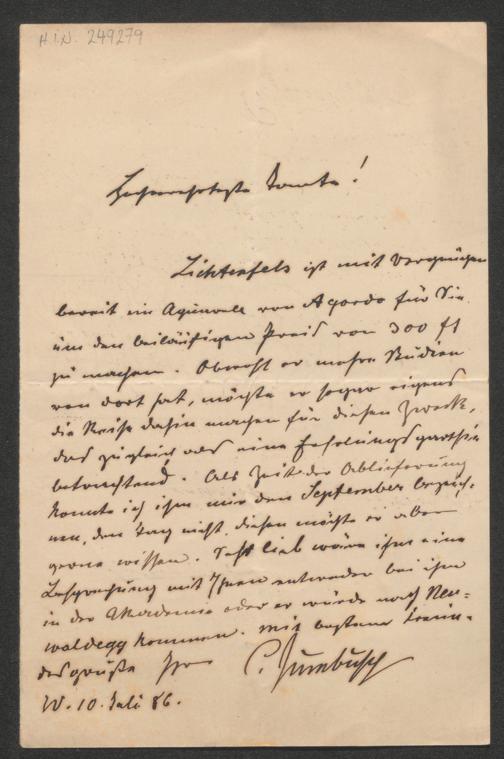 H.I.N. 249279
Hochverehrteste Tante!
Lichtenfels ist mit Vergnügen
bereit ein Aquarell von Agordo für Sie
um den beiläufigen Preis von 300 fl
zu machen. Obwohl er mehre Studien
von dort hat, möchte er sogar eigens
die Reise dahin machen für diesen Zweck,
das zugleich als eine Erholungsparthie
betrachtend. Als Zeit der Ablieferung
konnte ich ihm nur den September bezeich-
nen, den Tag nicht, diesen möchte er aber
gerne wissen. Sehr lieb wäre ihm eine
Besprechung mit Ihnen entweder bei ihm
in der Akademie oder er würde nach Neu-
waldegg kommen. Mit bestem Freun-
desgruße Ihr C. Zumbusch
W. 10. Juli 86.